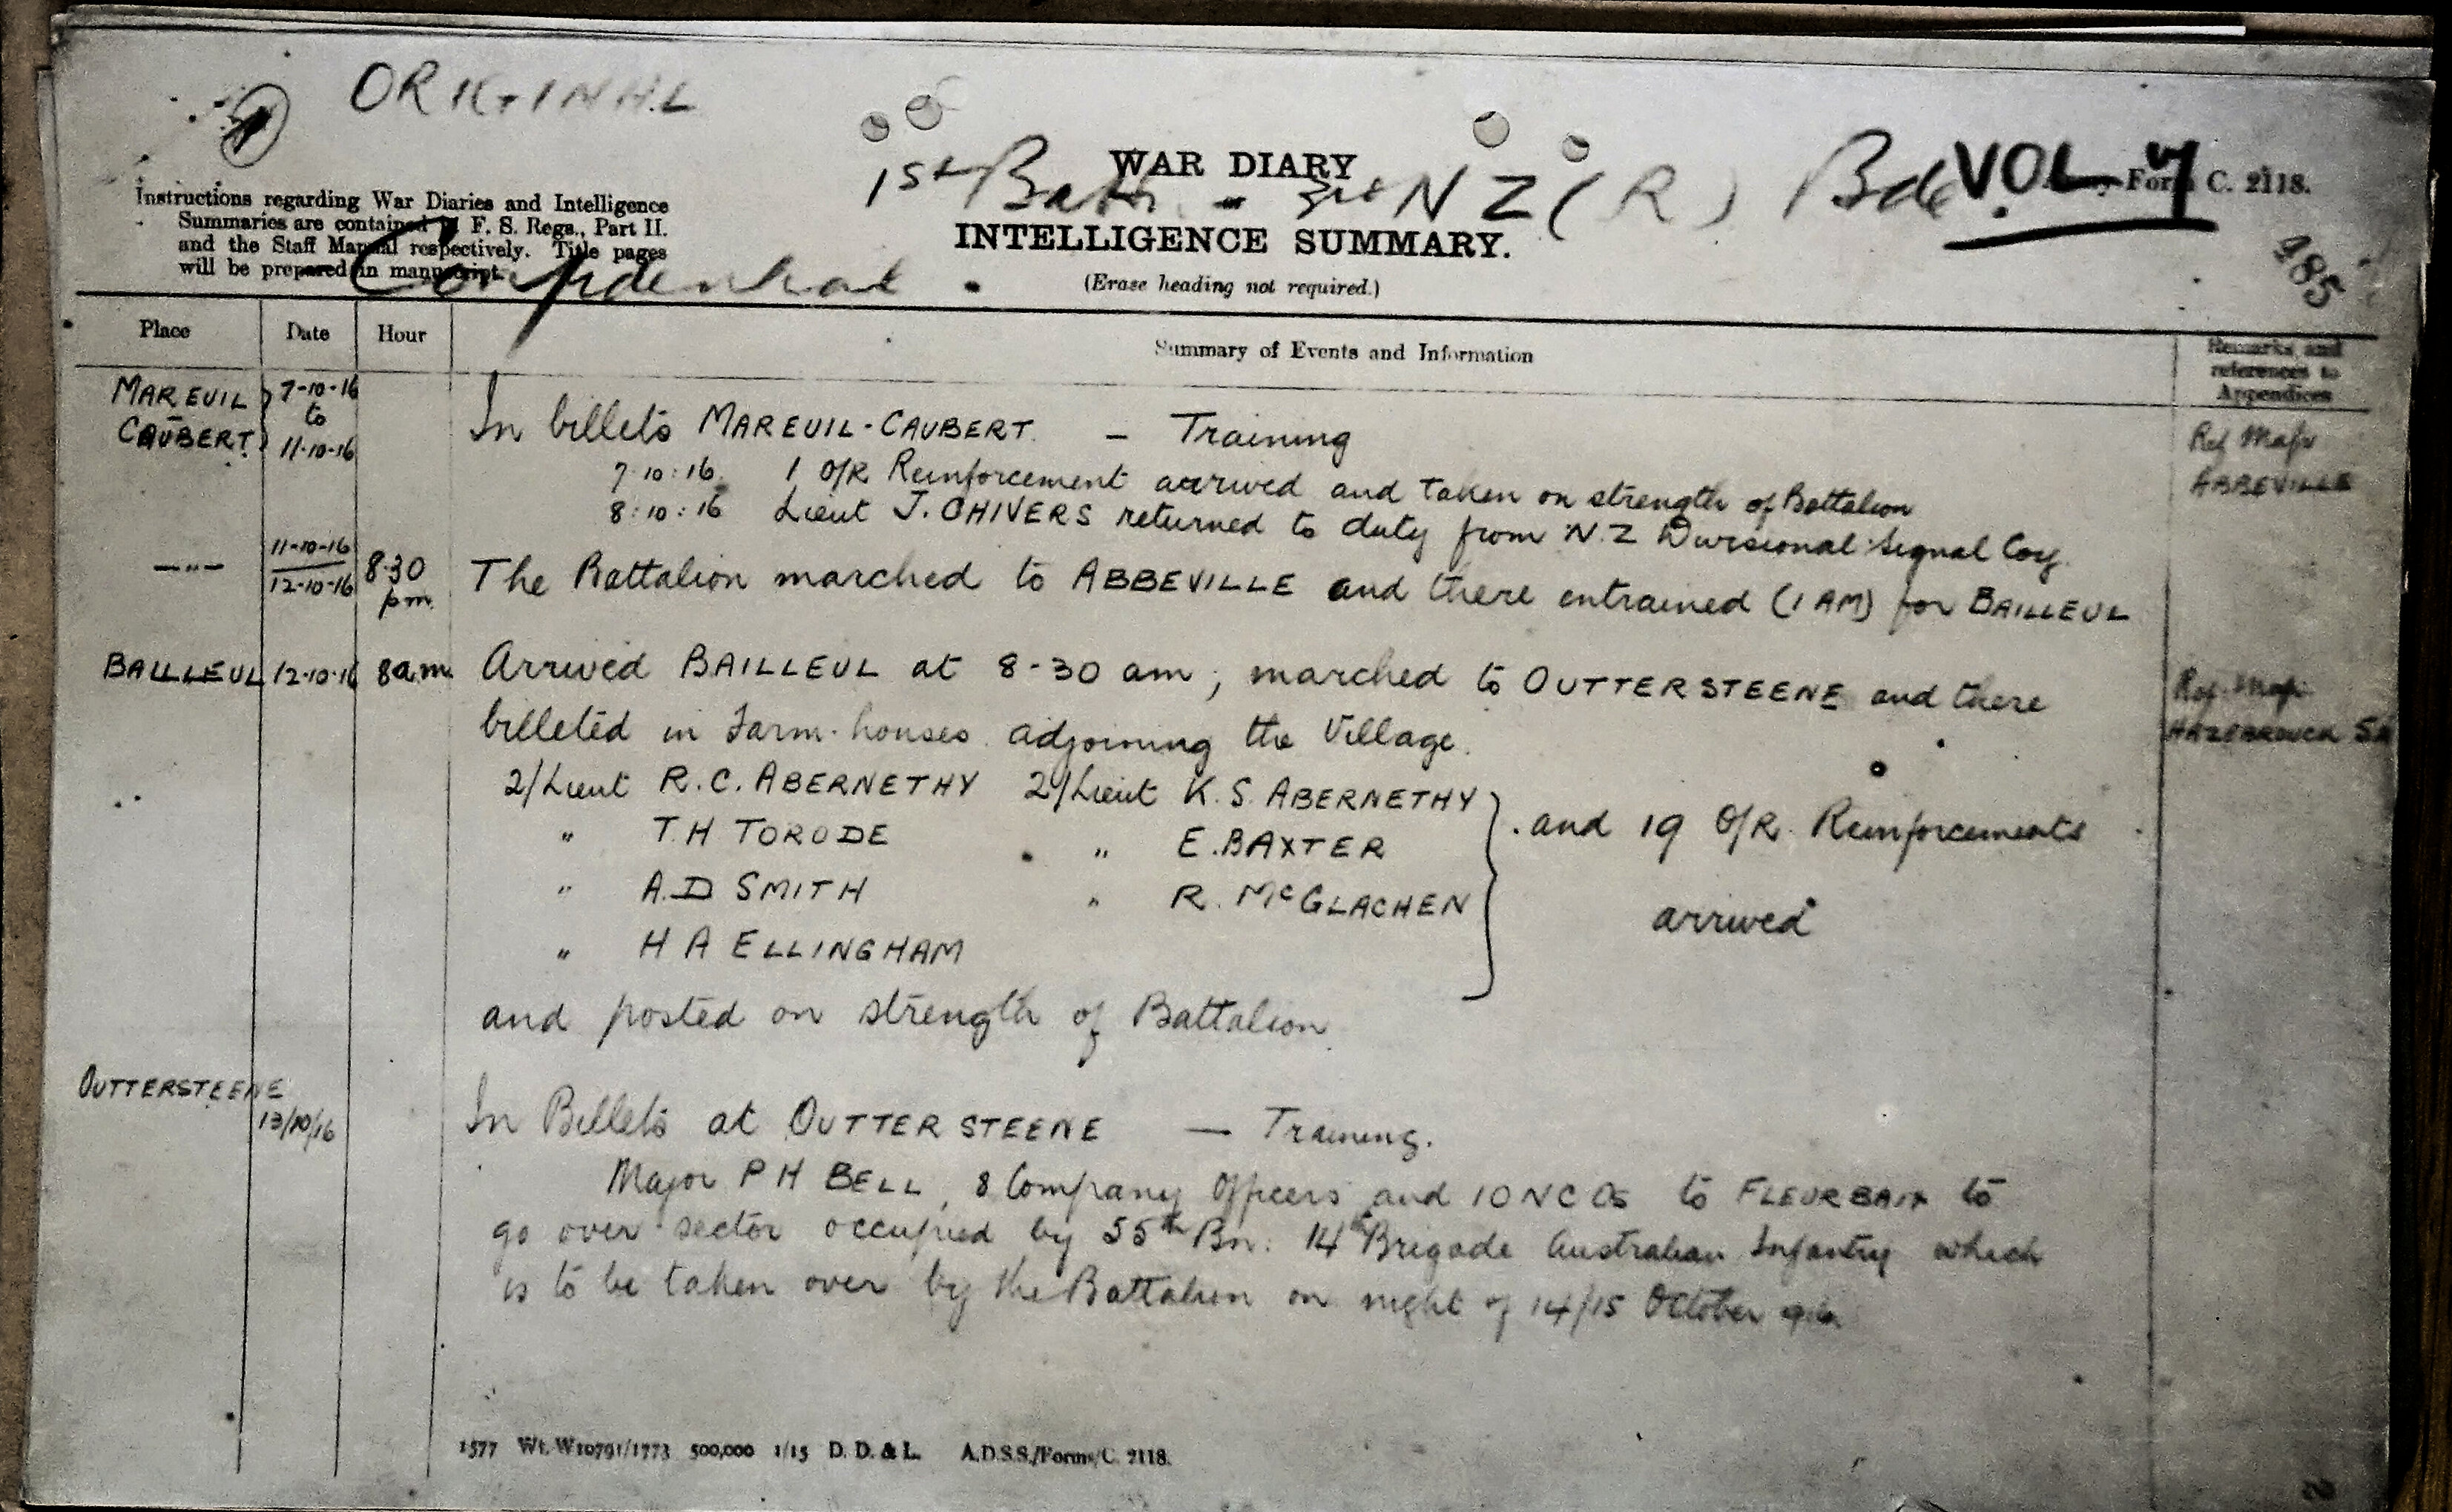 ORIGINAL
WAR DIARY
1st Battn 3rd NZ (R) Bde
VOL
Form C. 2118.
INTELLIGENCE SUMMARY.
(Erase heading not required.)
485
Instructions regarding War Diaries and Intelligence
Summaries are contained in F. S. Regs., Part II.
and the Staff Manual respectively. Title pages
will be prepared in manuscript.
Confidential.
Place Date Hour Summary of Events and Information Remarks and
references to
Appendices
MAREUIL
CAUBERT
7-10-16
to
11-10-16
In billets MAREUIL-CAUBERT. — Training
Ref Map
ABBEVILLE
7.10.16. 1 O/R Reinforcement arrived and taken on strength of Battalion
8.10.16 Lieut J. CHIVERS returned to duty from N.Z Divisional Signal Coy.
—"— 11-10-16
12-10-16 8.30
pm.
The Battalion marched to ABBEVILLE and there entrained (1 AM) for BAILLEUL
BAILLEUL 12-10-16 8am. Arrived BAILLEUL at 8-30 am, marched to OUTTERSTEENE and there
Ref. Map
HAZEBROUCK 5A
billeted in Farm-houses adjoining the Village.
2/Lieut R.C. ABERNETHY 2/Lieut K.S. ABERNETHY
" T.H TORODE " E.BAXTER and 19 O/R Reinforcements
" A.D SMITH " R. McGLACHEN arrived
" H A ELLINGHAM
and posted on strength of Battalion.
OUTTERSTEENE
13/10/16
In Billets at OUTTERSTEENE — Training.
Major P H BELL, 8 Company Officers and 10 NCOs to FLEURBAIX to
go over sector occupied by 55th Bn. 14th Brigade Australian Infantry which
is to be taken over by the Battalion on night of 14/15 October
1577 Wt. W10791/1773 500,000 1/15 D. D. & L. A.D.S.S./Forms/C. 2118.